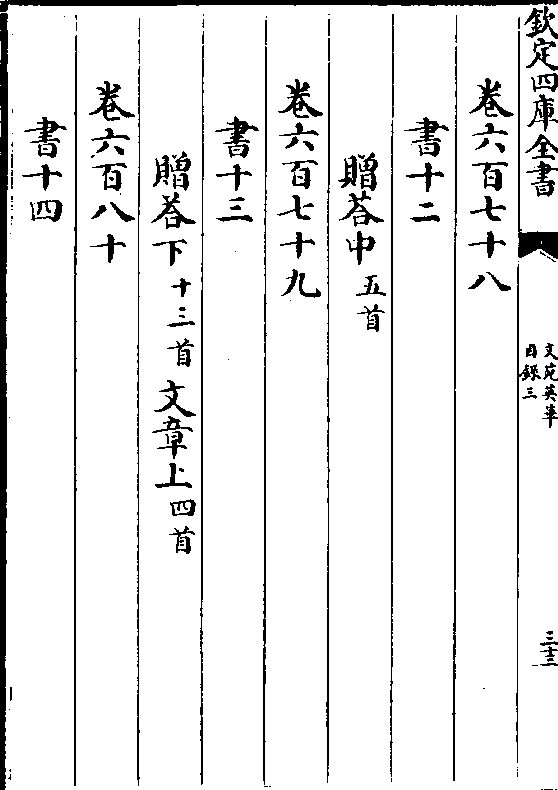 欽定四庫全書
文苑英華
目録三
三十三
卷六百七十八
書十二
贈荅中五首
卷六百七十九
書十三
贈荅下十三首文章上四首
卷六百八十
書十四